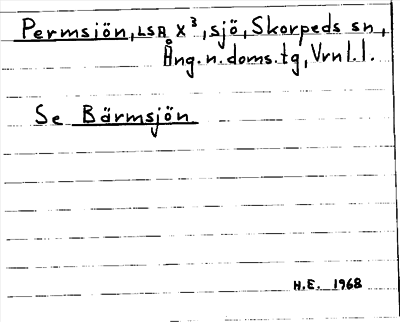 Permsjön, LSA X³, sjö, Skorpeds sn,
Ång.n.doms.tg, Vrnl.l.
Se Bärmsjön
H.E. 1968